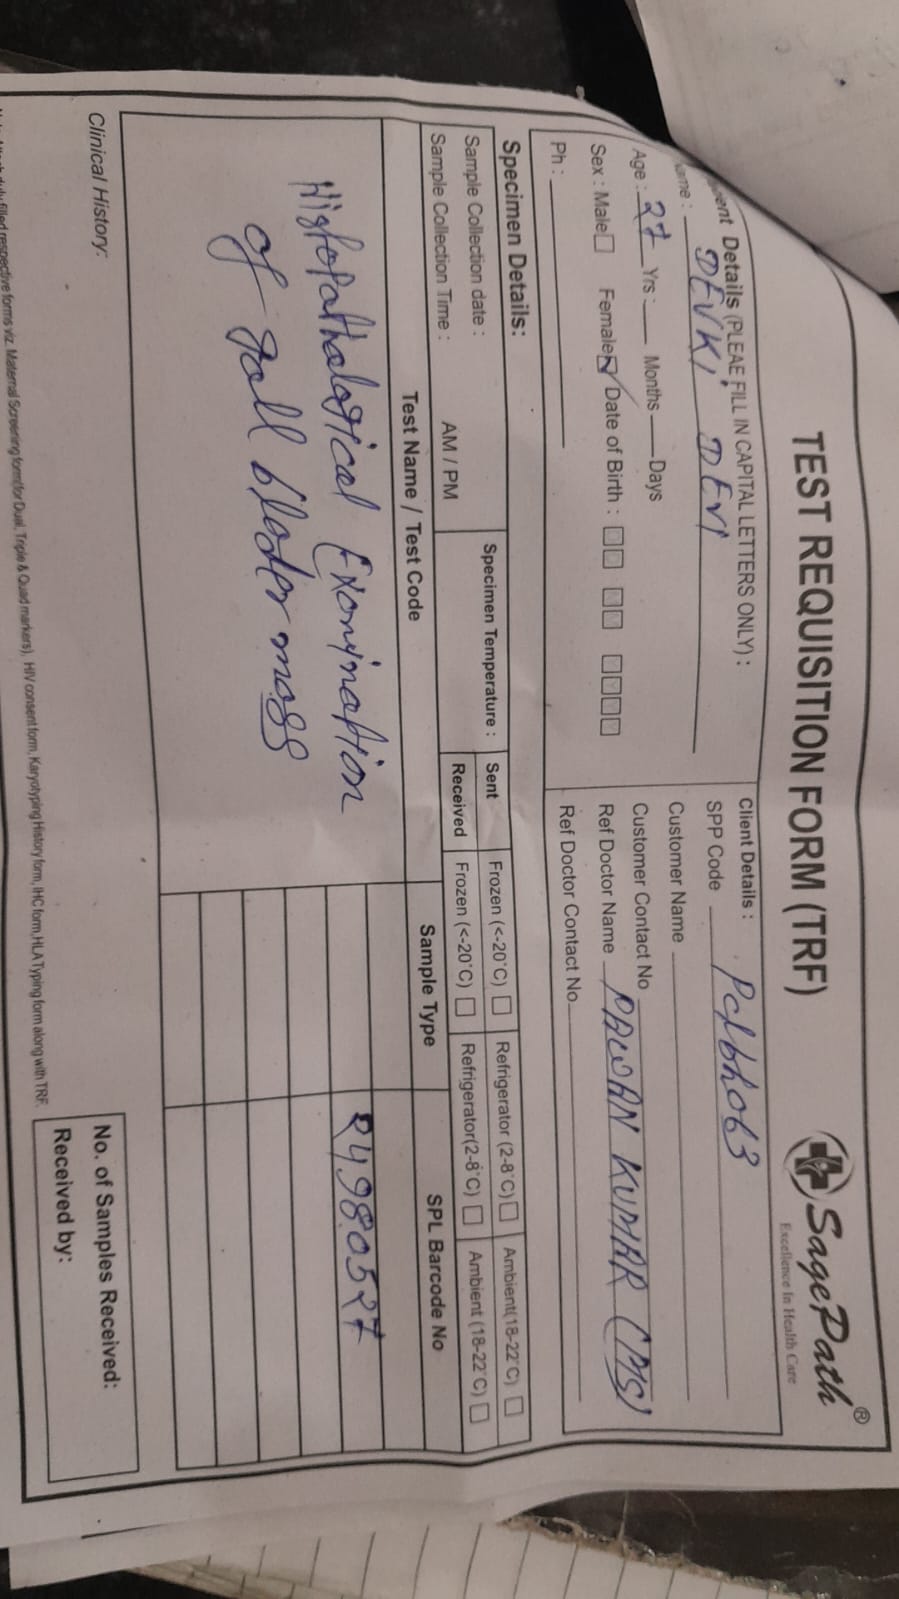 TEST REQUISITION FORM (TRF)
SagePath®
Excellence In Health Care
Details (PLEAE FILL IN CAPITAL LETTERS ONLY) :
DEVKI DEVI
Age : 27 Yrs : Months Days
Sex : Male Female Date of Birth :
Ph :
Client Details :
SPP Code Pclbh063
Customer Name
Customer Contact No
Ref Doctor Name PAWAN KUMAR (MS)
Ref Doctor Contact No
Specimen Details:
Sample Collection date :
Sample Collection Time : AM / PM
Specimen Temperature :
Sent Frozen (<-20°C) Refrigerator (2-8°C) Ambient(18-22°C)
Received Frozen (<-20°C) Refrigerator(2-8°C) Ambient (18-22°C)
Test Name / Test Code Sample Type SPL Barcode No
Histopathalogical Examination
of gall blader mass
24980527
Clinical History:
No. of Samples Received:
Received by:
duly filled respective forms viz. Maternal Screening form(for Dual, Triple & Quad markers), HIV consent form, Karyotyping History form, IHC form, HLA Typing form along with TRF.